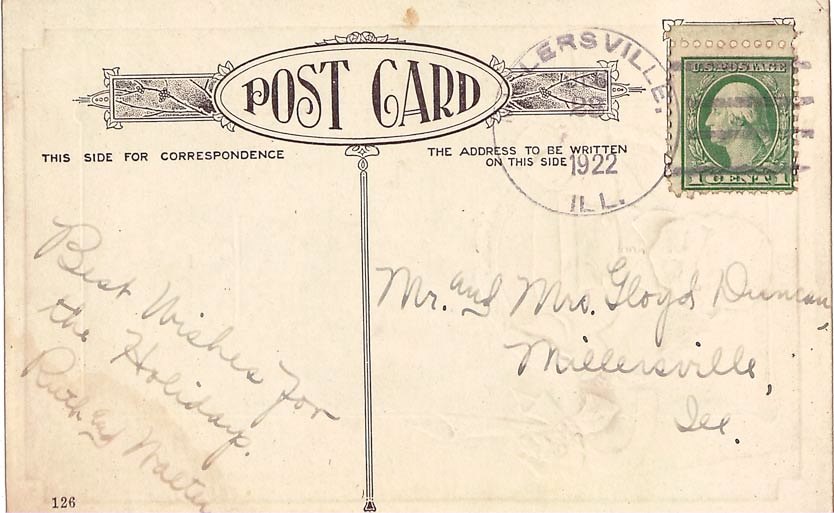 POST CARD
THIS SIDE FOR CORRESPONDENCE
THE ADDRESS TO BE WRITTEN
ON THIS SIDE
LERSVILLE,
1922
ILL.
U.S. POSTAGE
1 CENT 1
Best Wishes for
the Holidays.
Ruth and Walter
Mr. and Mrs. Gloyd Duncan,
Millersville,
Ill.
126